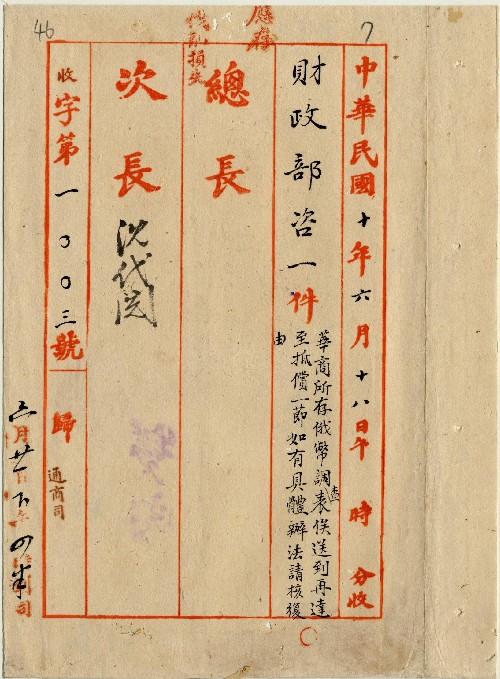 7
46
中華民國十年六月十八日午 時 分收
財政部咨一件
華商所存俄幣調查表俟送到再達
至抵償一節如有具體辦法請核復
由
總長
次長
沈代閱
收字第一〇〇三號
歸
通商司
損失